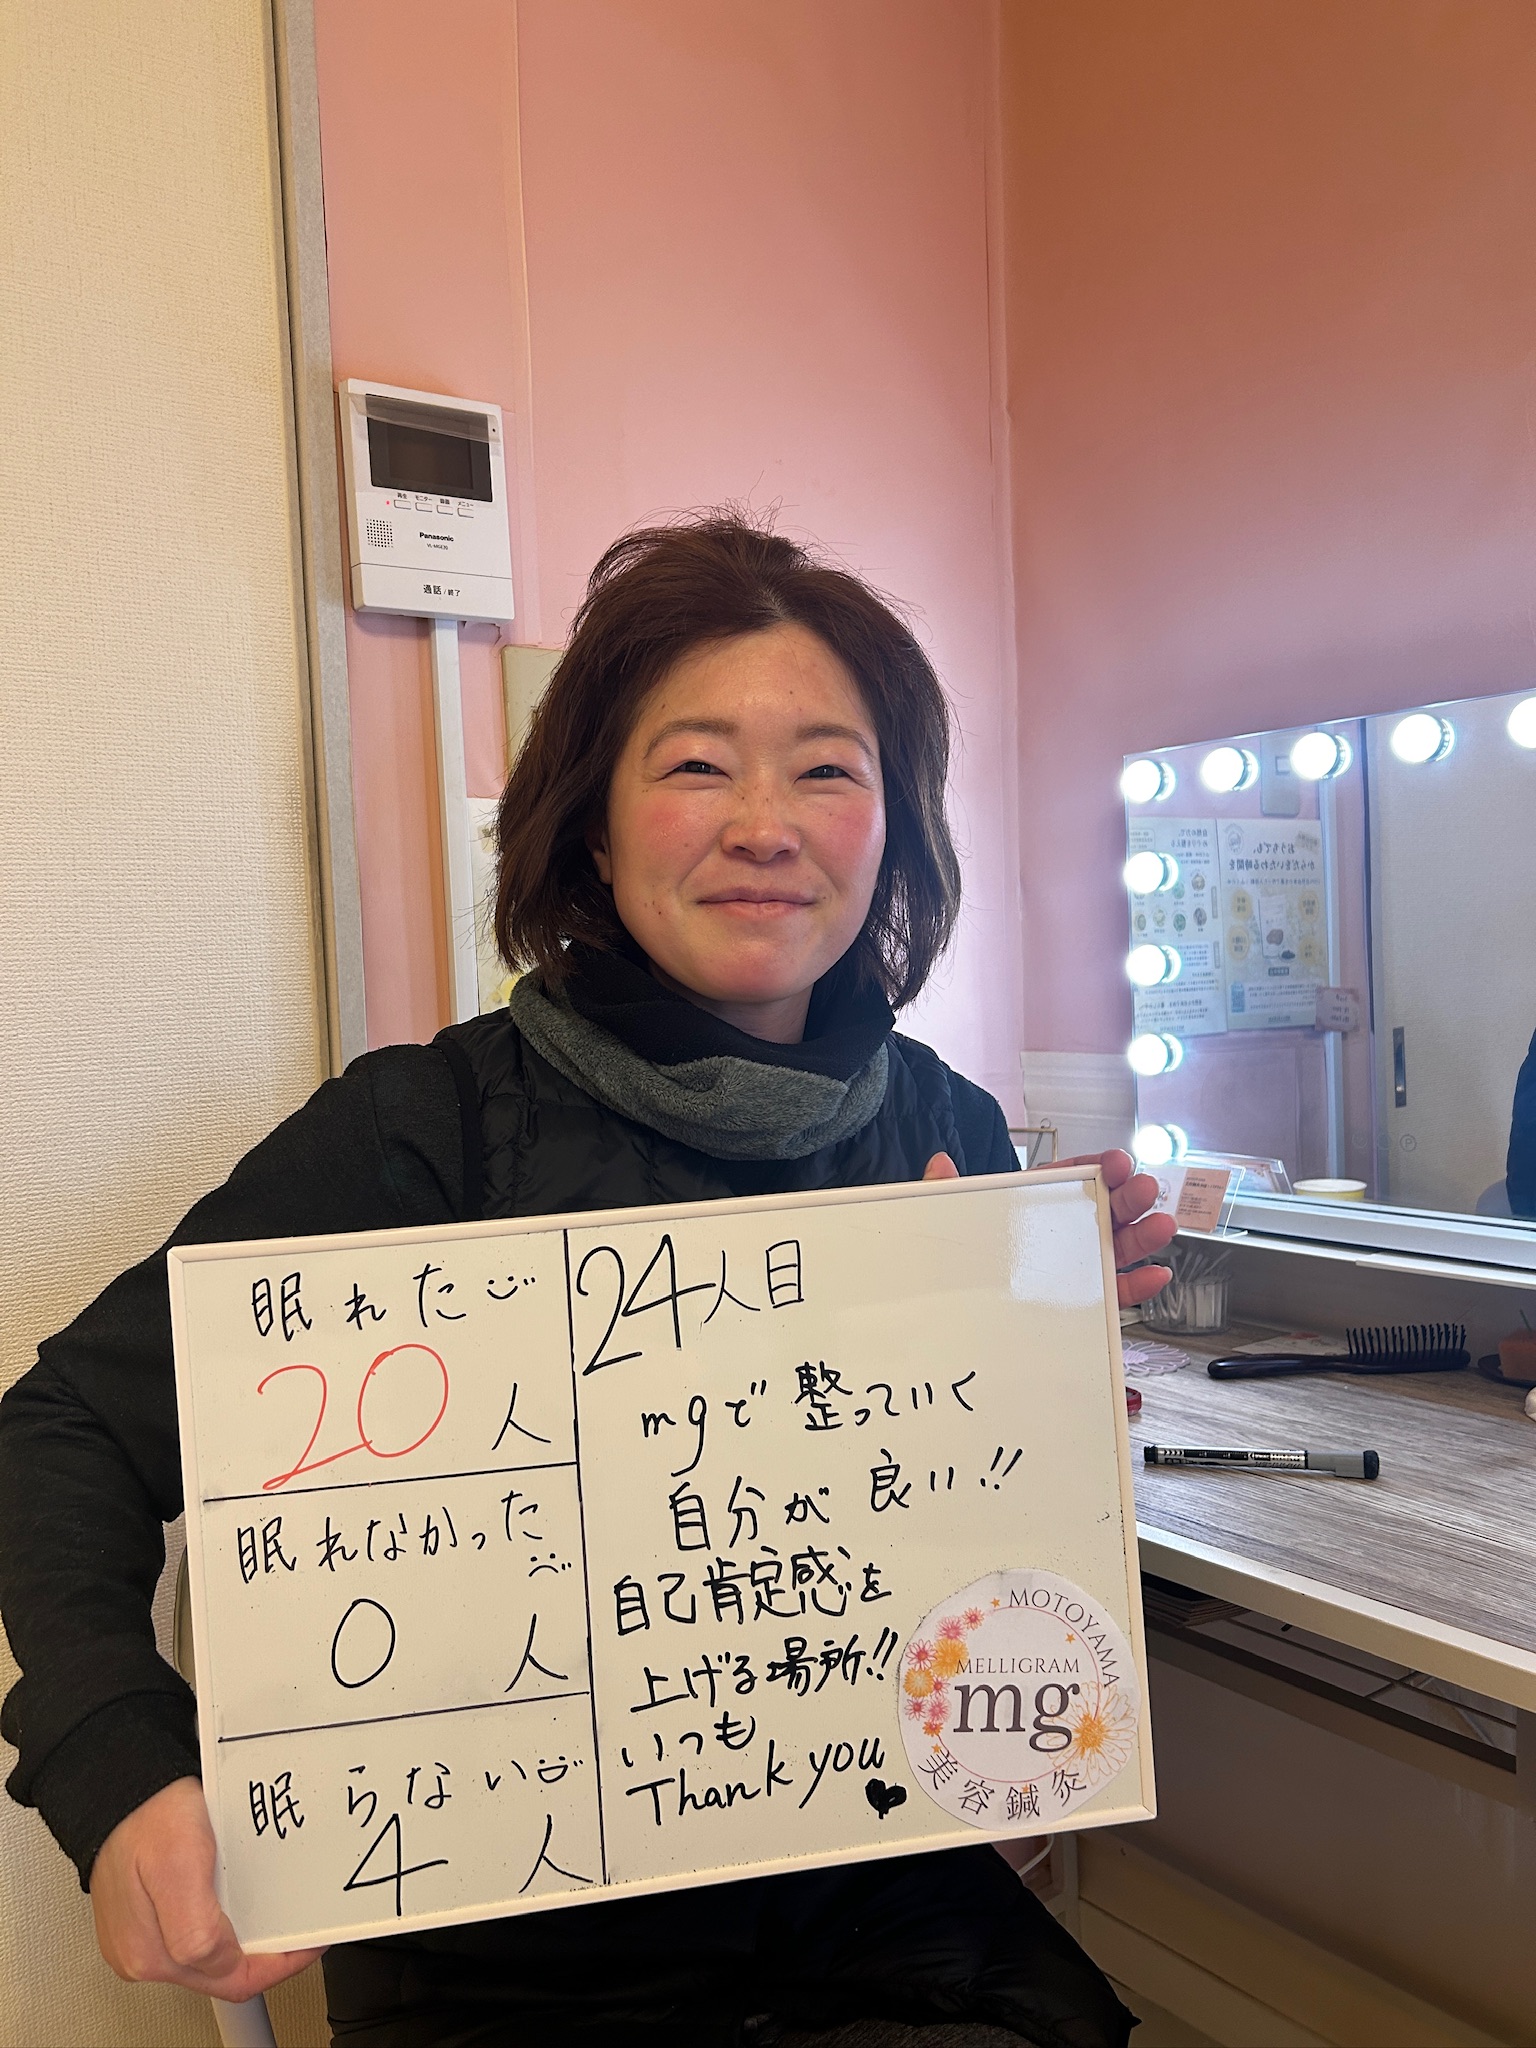 再生 モニター 録画 メニュー
Panasonic
VL-MGE30
通話 / 終了
眠れた
20人
眠れなかった
0人
眠らない
4人
24人目
mgで整っていく
自分が良い!!
自己肯定感を
上げる場所!!
いつも
Thank you
MOTOYAMA
MELLIGRAM
mg
美容鍼灸
おうちでも、
からだをいたわる時間を